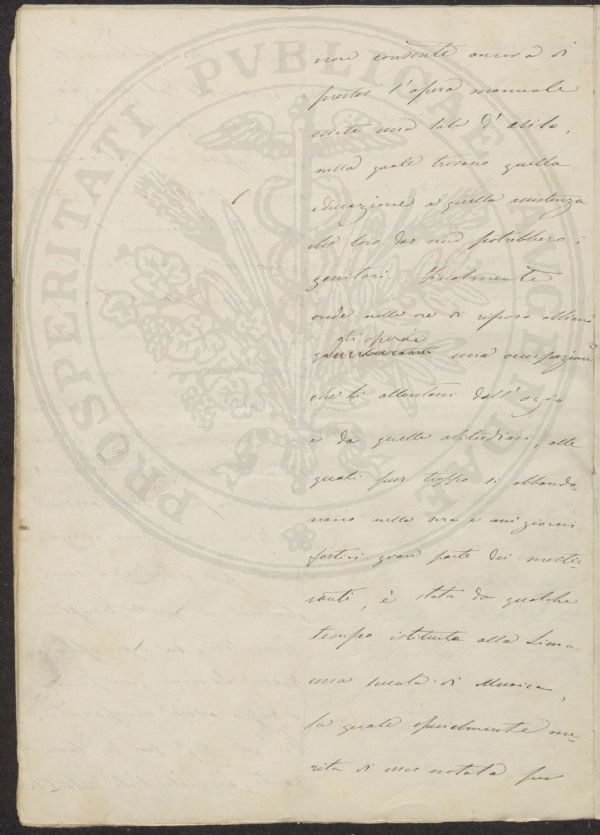 non consente ancora di
prestar l'opera manuale
una sala d'asilo,
nella quale trovano quella
educazione e quella assistenza
che loro dar non potrebbero i
genitori. Finalmente
onde nelle ore di riposo abbiano
gli operai
una occupazione
che li allontani dall'ozio
e da quelle abitudini, alle
quali pur troppo si abbando-
nano nella sera e nei giorni
festivi gran parte dei mesti-
ranti, è stata da qualche
tempo istituita alla Lima
una scuola di Musica,
la quale specialmente me-
rita di esser notata per
PROSPERITATI PVBLICAE AVGENDAE